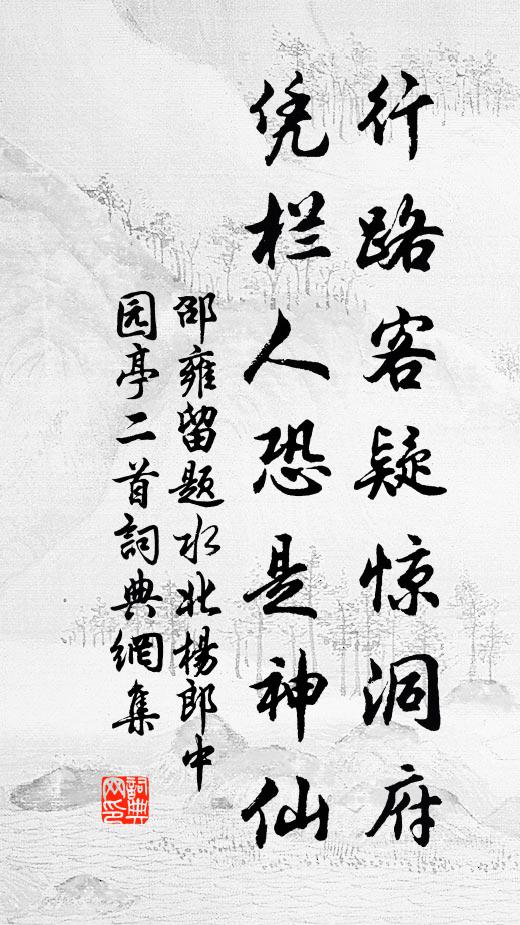 行路客疑惊洞府
凭栏人恐是神仙
邵雍留题水北楊郎中
园亭二首詞典網集
詞典
网印